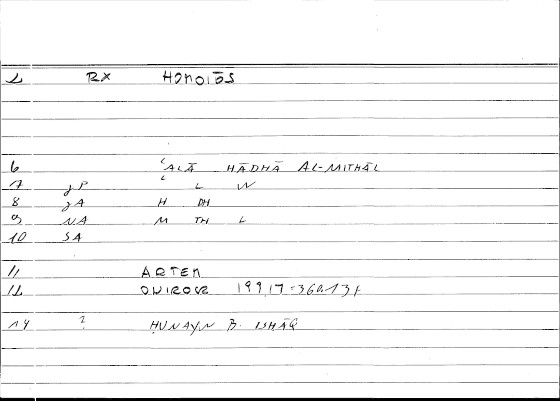 2 RX HOMOIŌS
6 ʿALĀ HĀDHĀ AL-MITHĀL
7 JP ʿ L W
8 JA H DH
9 NA M TH L
10 SA
11 ARTEM
12 ONIROCR 199,17
14 ? ḤUNAYN B. ISḤĀQ